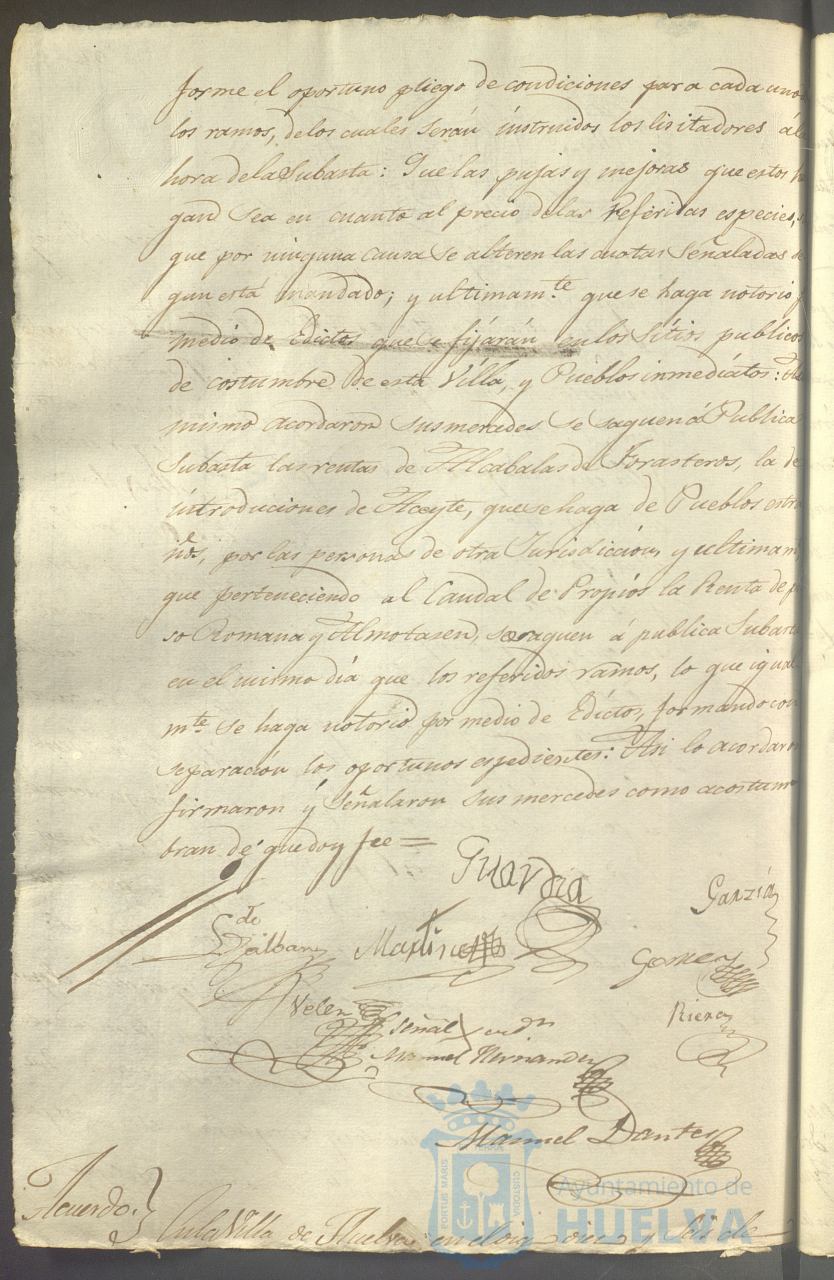 forme el oportuno pliego de condiciones para cada uno
los ramos, de los cuales serán instruidos los licitadores á la
hora de la Subasta: Que las pujas y mejoras que estos h
gan sea en cuanto al precio de las referidas especies, s
que por ninguna causa se alteren las cuotas Señaladas se
gun está mandado; y ultimam.te que se haga notorio p
medio de Edictos que se fijárán en los Sitios publicos
de costumbre de esta Villa, y Pueblos inmediatos: As
mismo acordaron sus mercedes se saquen á Publica
Subasta las rentas de Alcabalas de Forasteros, la de
introduciones de Aceyte, que se haga de Pueblos estra
ños, por las personas de otra Jurisdiccion y ultimam
que perteneciendo al Caudal de Propios la Renta de p
so Romana y Almotasen, se saquen á publica Subasta
en el mismo dia que los referidos ramos, lo que igual
mte se haga notorio por medio de Edictos, formando con
separacion los oportunos espedientes: Asi lo acordaron
firmaron y Señalaron sus mercedes como acostum
bran de que doy fee =
Guardia
Garzía
Martinez
Gomez
Velez
Riera
Señal en dn
Manuel Hernandez
Manuel Dantes
PORTUS MARIS
TERRAE
CUSTODIA
Ayuntamiento de
HUELVA
Acuerdo.
En la Villa de Huelva en el dia diez y seis de